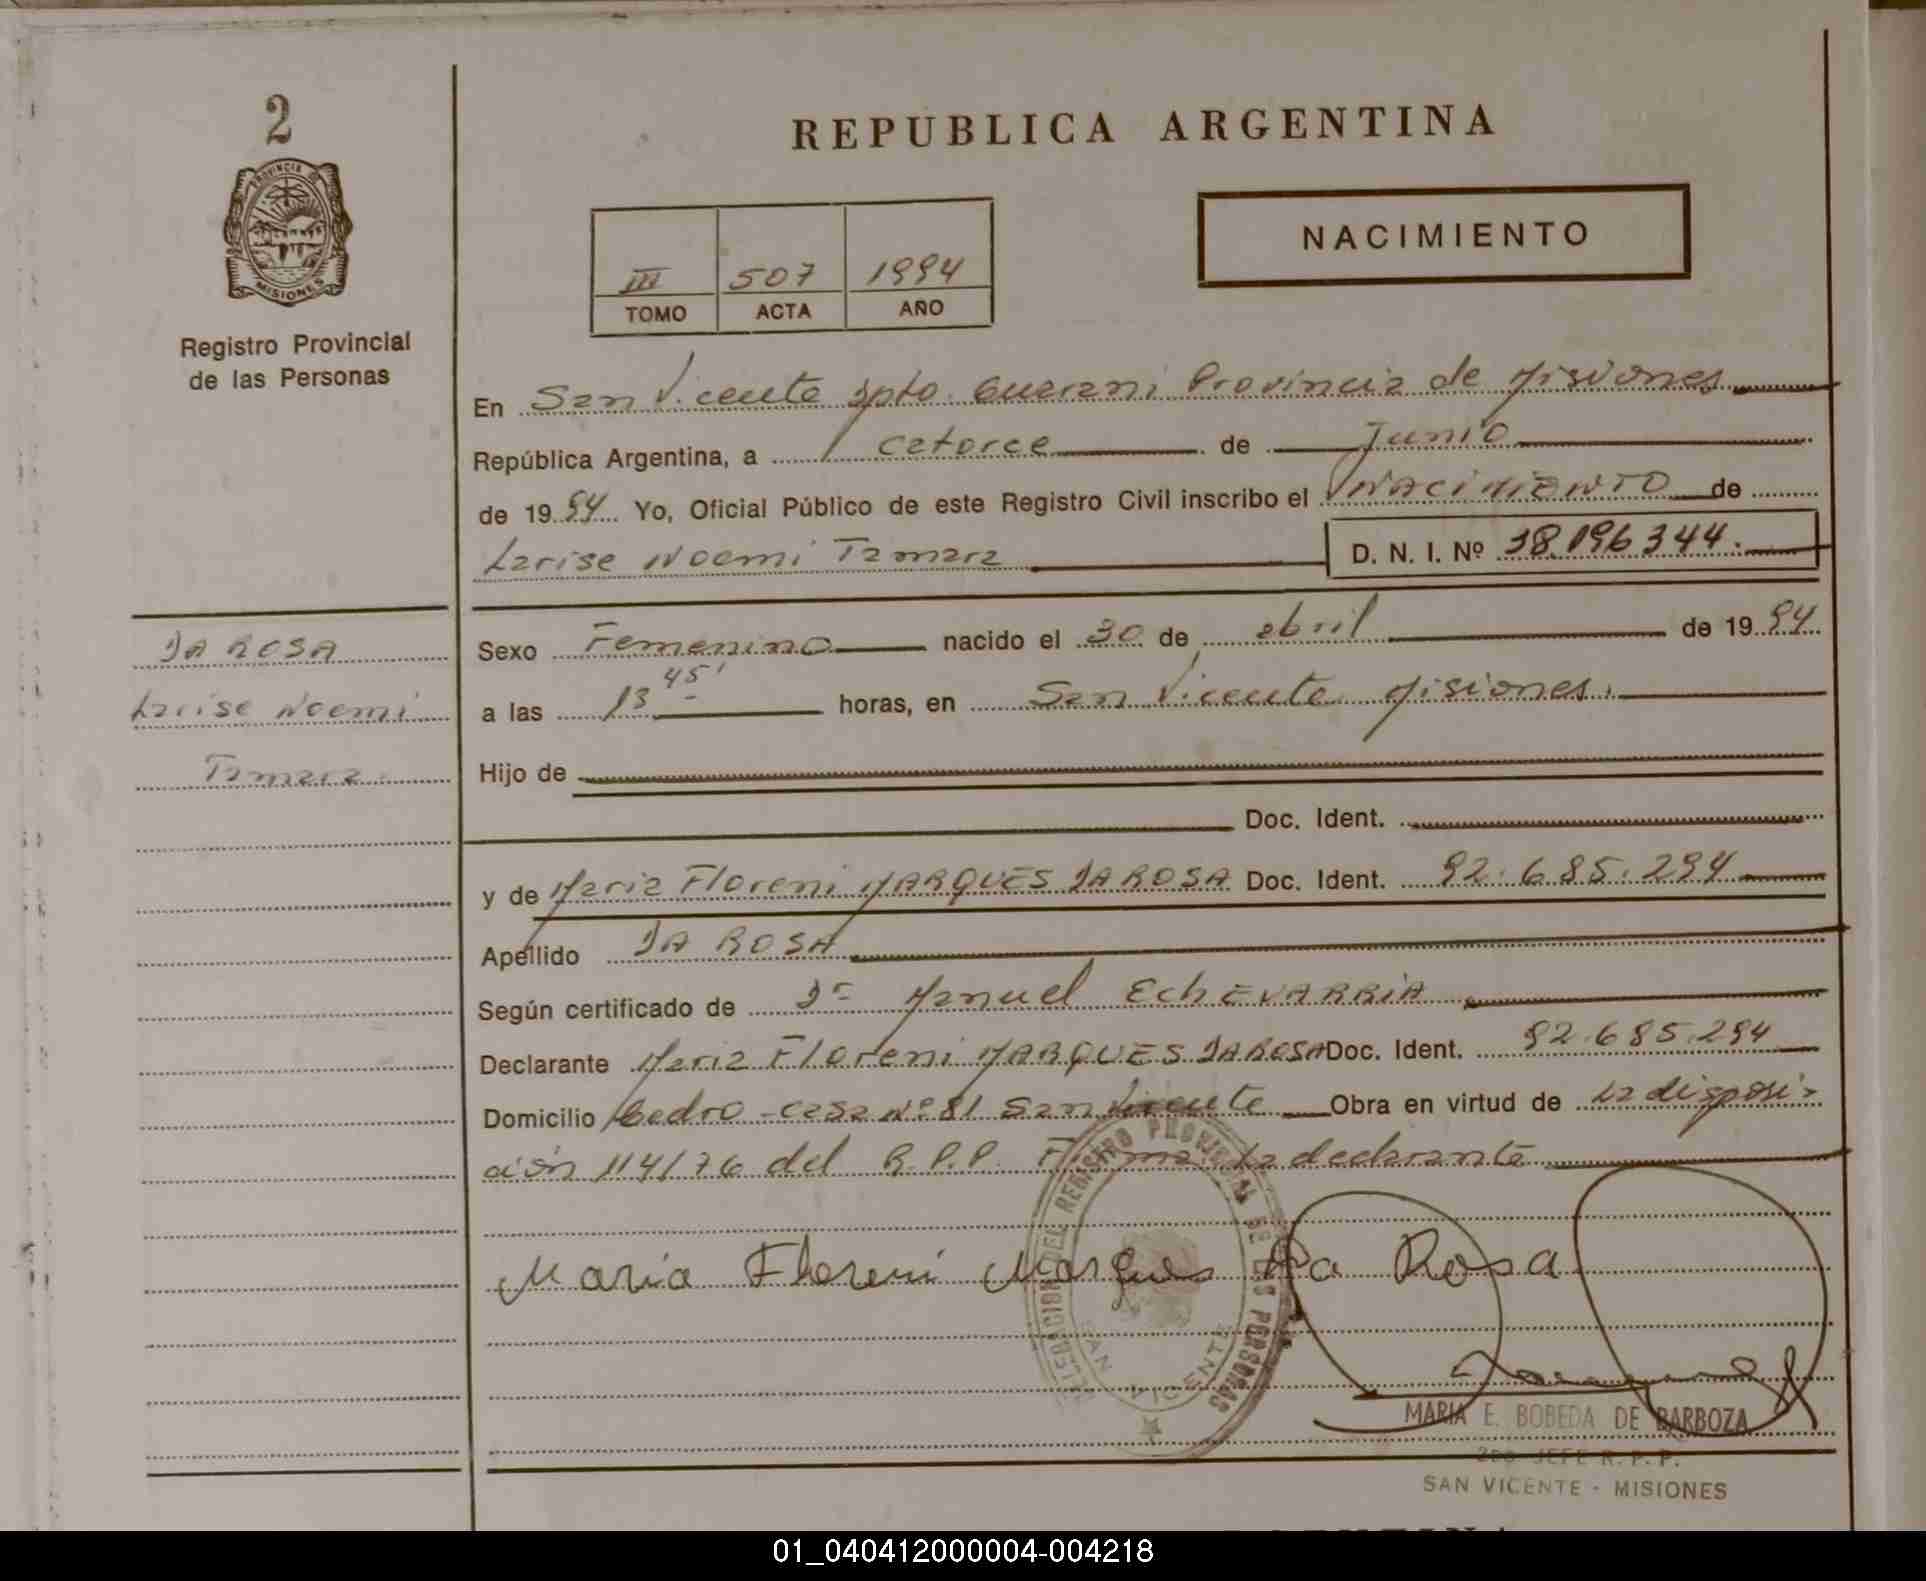 2
PROVINCIA DE
MISIONES
Registro Provincial
de las Personas
REPUBLICA ARGENTINA
NACIMIENTO
III 507 1994
TOMO ACTA AÑO
En San Vicente Dpto. Guarani Provincia de Misiones
República Argentina, a catorce de Junio
de 1994 Yo, Oficial Público de este Registro Civil inscribo el NACIMIENTO de
Larise Noemi Tamara D. N. I. Nº 38.196.344.
DA ROSA
Larise Noemi
Tamara
Sexo Femenino nacido el 30 de abril de 1994
a las 13 45' horas, en San Vicente Misiones.
Hijo de
Doc. Ident.
y de Maria Floreni MARQUES DA ROSA Doc. Ident. 92.685.294
Apellido DA ROSA
Según certificado de Dr Manuel EchEVARRIA
Declarante Maria Floreni MARQUES DA ROSA Doc. Ident. 92.685.294
Domicilio Cedro - casa Nº 81 San Vicente Obra en virtud de la disposi-
ción 114/76 del R.P.P. Firma la declarante
Maria Floreni Marques Da Rosa
DELEGACION DEL REGISTRO PROVINCIAL DE LAS PERSONAS
SAN VICENTE
MARIA E. BOBEDA DE BARBOZA
2do JEFE R.P.P.
SAN VICENTE - MISIONES
01_040412000004-004218